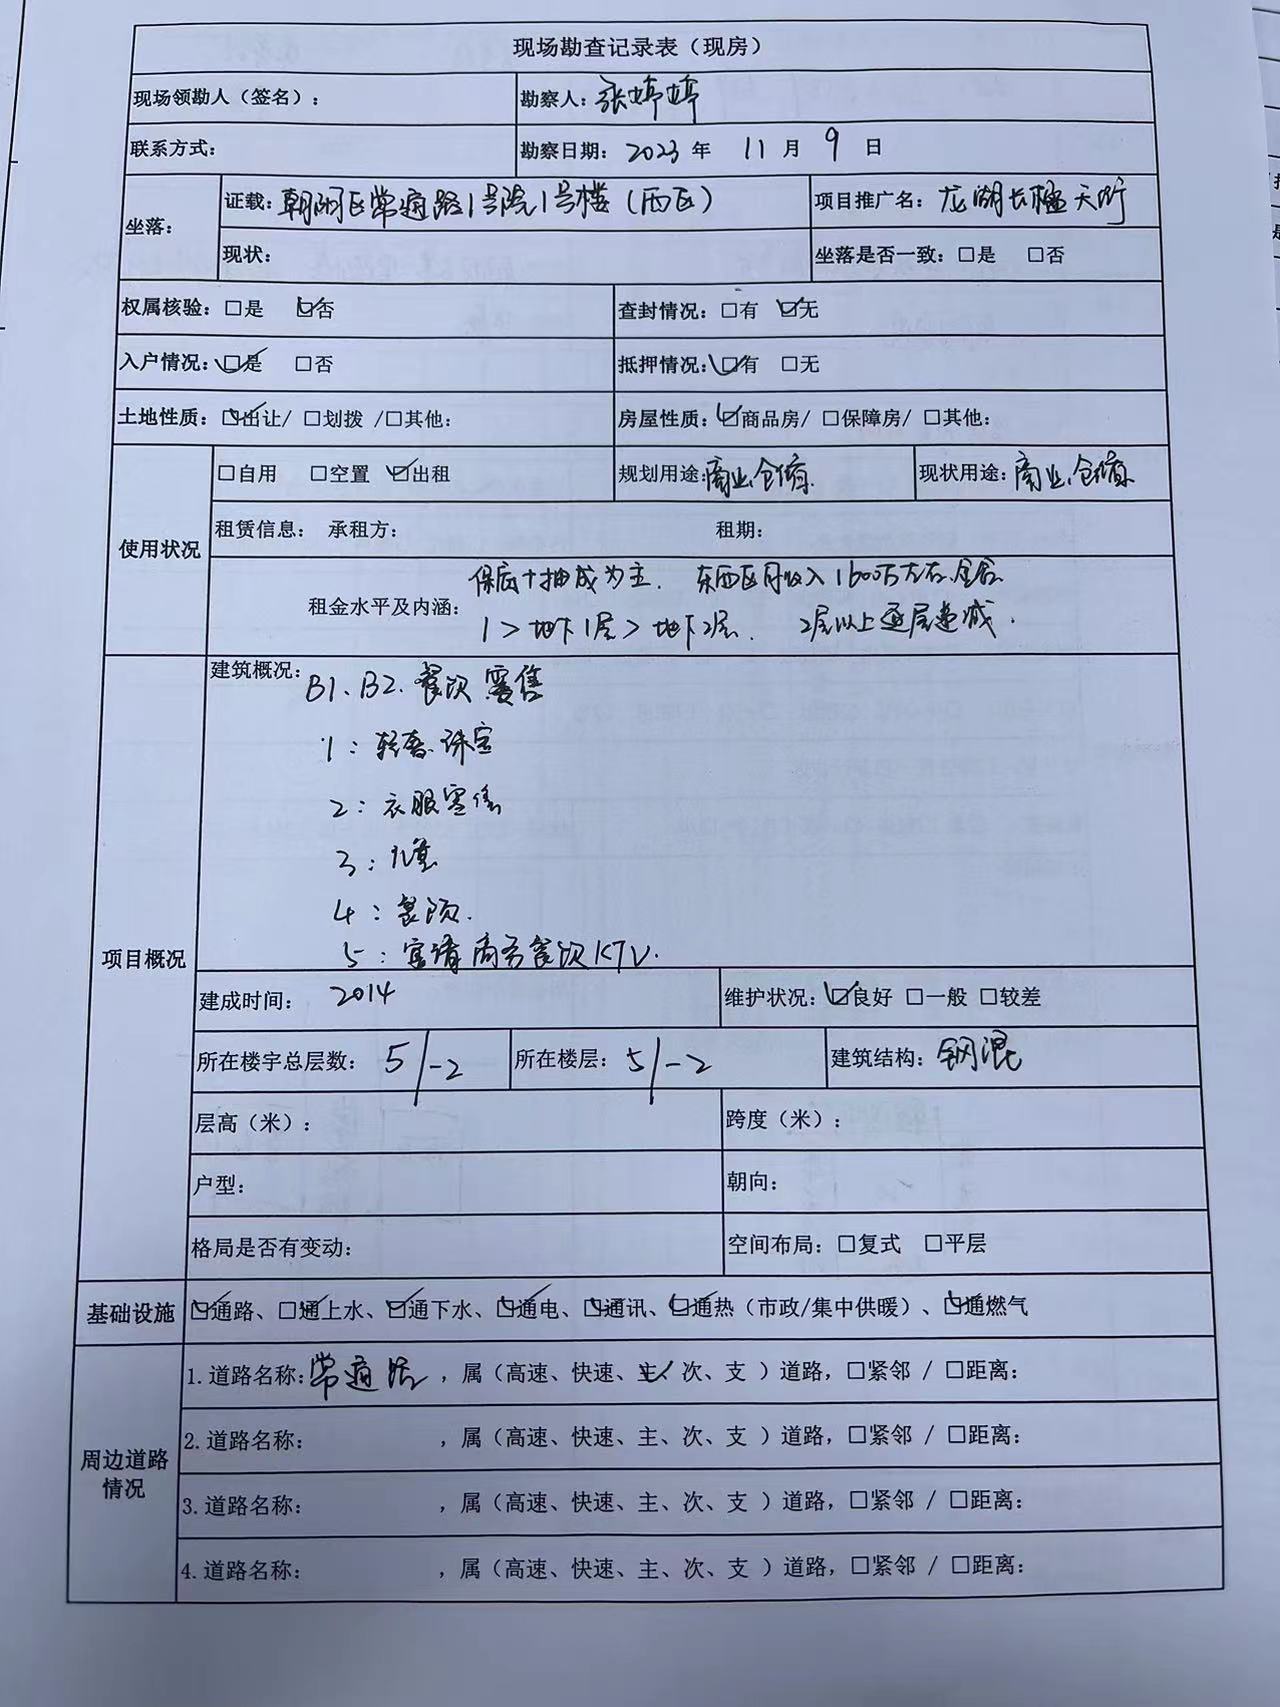 现场勘查记录表（现房）
现场领勘人（签名）：
勘察人：张婷婷
联系方式：
勘察日期：2023 年 11 月 9 日
坐落：
证载：朝阳区常通路1号院1号楼（西区）
项目推广名：龙湖长楹天街
现状：
坐落是否一致：□是 □否
权属核验：□是 ☑否
查封情况：□有 ☑无
入户情况：☑是 □否
抵押情况：☑有 □无
土地性质：☑出让/ □划拨 /□其他：
房屋性质：☑商品房/ □保障房/ □其他：
使用状况
□自用 □空置 ☑出租
规划用途：商业、仓储
现状用途：商业、仓储
租赁信息： 承租方： 租期：
租金水平及内涵：
保底+抽成为主. 东西区月收入1600万左右
1＞地下1层＞地下2层. 2层以上逐层递减.
项目概况
建筑概况：B1、B2. 餐饮 零售
1：轻奢、珠宝
2：衣服零售
3：儿童
4：餐饮.
5：宴请 商务餐饮 KTV.
建成时间： 2014
维护状况：☑良好 □一般 □较差
所在楼宇总层数： 5/-2
所在楼层：5/-2
建筑结构：钢混
层高（米）：
跨度（米）：
户型：
朝向：
格局是否有变动：
空间布局：□复式 □平层
基础设施
☑通路、☑通上水、☑通下水、☑通电、☑通讯、☑通热（市政/集中供暖）、☑通燃气
周边道路情况
1.道路名称：常通路 ，属（高速、快速、主✓次、支 ）道路，□紧邻 / □距离：
2.道路名称： ，属（高速、快速、主、次、支 ）道路，□紧邻 / □距离：
3.道路名称： ，属（高速、快速、主、次、支 ）道路，□紧邻 / □距离：
4.道路名称： ，属（高速、快速、主、次、支 ）道路，□紧邻 / □距离：